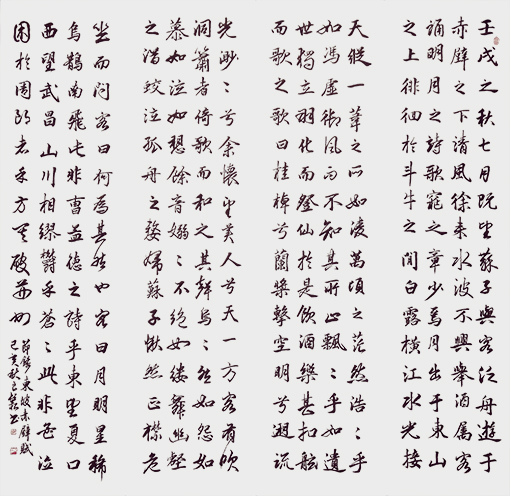 壬戌之秋七月既望蘇子與客泛舟遊于
赤壁之下清風徐来水波不興舉酒属客
誦明月之詩歌窕之章少焉月出于東山
之上徘徊於斗牛之間白露横江水光接
天縱一葦之所如凌萬頃之茫然浩〻乎
如馮虚御風而不知其所止飄〻乎如遺
世獨立羽化而登仙於是飲酒樂甚扣舷
而歌之歌曰桂棹兮蘭槳擊空明兮溯流
光渺〻兮余懷望美人兮天一方客有吹
洞簫者倚歌而和之其聲烏〻然如怨如
慕如泣如愬餘音嫋〻不絶如縷舞幽壑
之潜蛟泣孤舟之嫠婦蘇子愀然正襟危
坐而問客曰何為其然也客曰月明星稀
烏鵲南飛此非曹孟德之詩乎東望夏口
西望武昌山川相繆鬱乎蒼〻此非孟
困於周郎者乎方其破荆州
節錄東坡赤壁賦
己亥秋立書